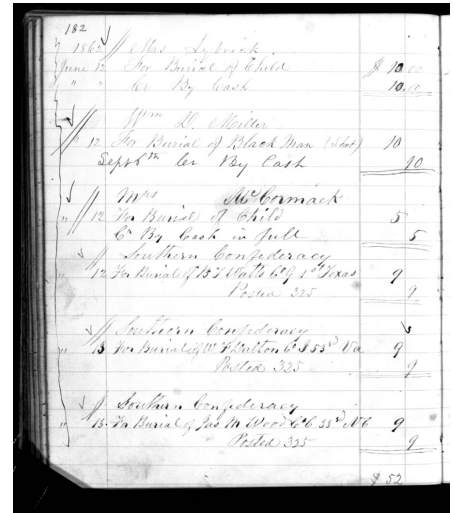 182
1862 // Mrs Lybrick
June 12 For Burial of Child $ 10.00
" " Cr By Cash 10.00
// Wm D. Miller
" 12 For Burial of Black Man (Shot) 10
Sept 6th Cr By Cash 10
// Mrs McCormack
" 12 For Burial of Child 5
Cr By Cash in full 5
// Southern Confederacy
" 12 For Burial of B F Watts Co G 1st Texas 9
Posted 325 9
// Southern Confederacy
" 13 For Burial of W F Dalton Co I 53rd Va 9
Posted 325 9
// Southern Confederacy
" 13 For Burial of Jas M Wood Co C 33rd N C 9
Posted 325 9
$ 52